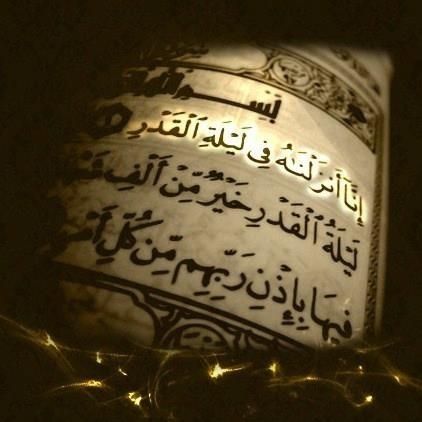 بِسْمِ ٱللَّهِ
إِنَّآ أَنزَلْنَٰهُ فِى لَيْلَةِ ٱلْقَدْرِ
لَيْلَةُ ٱلْقَدْرِ خَيْرٌ مِّنْ أَلْفِ
فِيهَا بِإِذْنِ رَبِّهِم مِّن كُلِّ